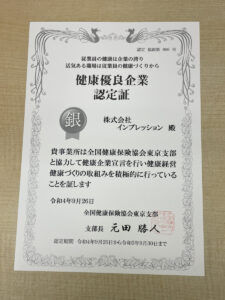 認定 協銀第 号
従業員の健康は企業の誇り
活気ある職場は従業員の健康づくりから
健康優良企業
認定証
銀
株式会社
インプレッション 殿
貴事業所は全国健康保険協会東京支部
と協力して健康企業宣言を行い健康経営
健康づくりの取組みを積極的に行っている
ことを証します
令和4年9月26日
全国健康保険協会東京支部
支部長 元田 勝人
認定期間 令和4年9月26日から令和5年9月30日まで